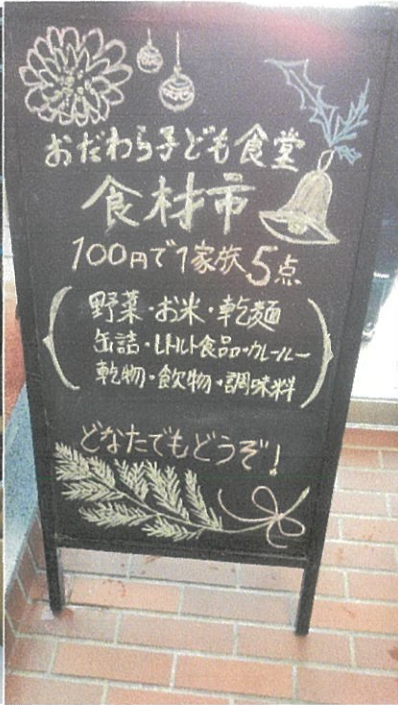 おだわら子ども食堂
食材市
100円で1家族5点
野菜・お米・乾麺
缶詰・レトルト食品・カレールー
乾物・飲物・調味料
どなたでもどうぞ!